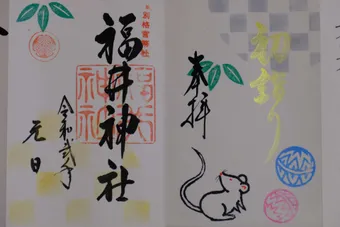 奉拝
朝詣り
別格官幣社
福井神社
令和弐年
元日